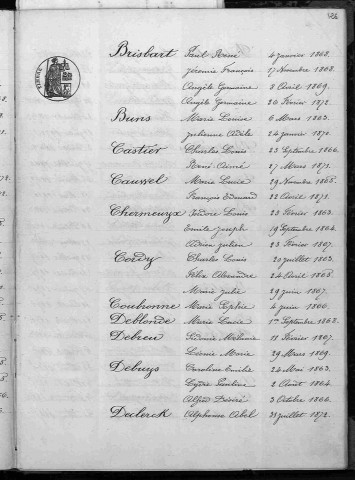 Brisbart Paul René 4 janvier 1868.
Jérémie François 17 Novembre 1868.
Angèle Germaine 8 Avril 1869.
Angèle Germaine 20 Février 1872.
Buns Marie Louise 6 Mars 1863.
Julienne Adèle 24 janvier 1870.
Castier Charles Louis 23 Septembre 1866.
René Aimé 27 Mars 1871.
Cauwel Marie Lucie 29 Novembre 1868.
François Edouard 22 Avril 1871.
Chermeuxyx Louis 23 Février 1863.
Emile Joseph 19 Septembre 1864.
Julien 23 Février 1867.
Cordy Charles Louis 20 juillet 1863.
Félix Alexandre 24 Avril 1865.
Marie Julie 29 juin 1867.
Coubronne Marie Sophie 4 juin 1866.
Deblonde Marie Lucie 1er Septembre 1868.
Debreu Sidonie Mélanie 11 Février 1867.
Léonie Marie 29 Mars 1869.
Debuys Caroline Emilie 24 Mai 1863.
Pauline 2 Août 1864.
Alfred Désiré 3 Octobre 1866.
Declerck Alphonse Abel 31 juillet 1872.